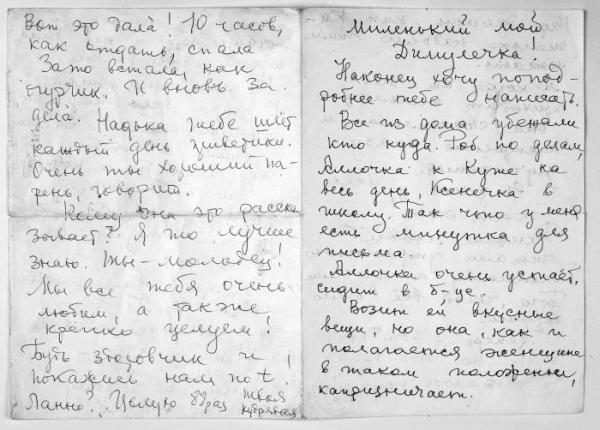 Вот это дала! 10 часов,
как отдать, спала
Зато встала, как
огурчик. И вновь за
дела. Надька тебе шлёт
каждый день приветики.
Очень ты хороший па-
рень, говорит.
Кому она это расска
зывает? Я то лучше
знаю. Ты - молодец!
Мы все тебя очень
любим, а также
крепко целуем!
Будь здоровчик и
покажись нам по t.
Ладно? Целую 88 раз твоя
кудрявая
Миленький мой
Димулечка!
Наконец хочу попод-
робнее тебе написать.
Все из дома убежали
кто куда. Роб по делам,
Аллочка к на
весь день, Ксенечка в
школу. Так что у меня
есть минутка для
письма
Аллочка очень устаёт,
сидит в б-це.
Возит ей вкусные
вещи, но она, как и
полагается женщине
в таком положении,
капризничает.